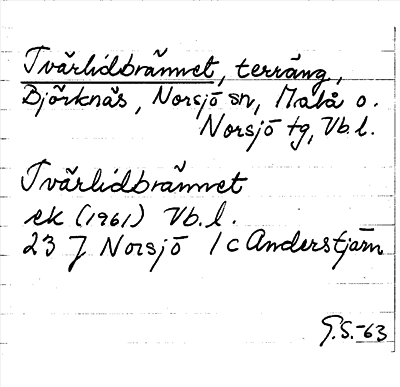 Tvärlidbrännet, terräng,
Björknäs, Norsjö sn, Malå o.
Norsjö tg, Vb.l.
Tvärlidbrännet
ek (1961) Vb.l.
23 J Norsjö 1 c Anderstjärn
G.S.-63